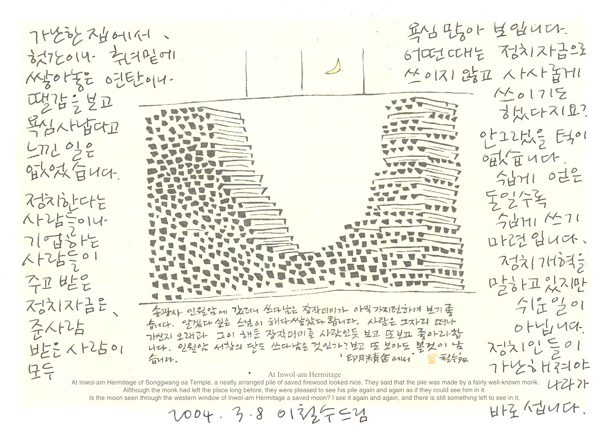 가난한 집에서,
헛간이나 추녀밑에
쌓아놓은 연탄이나
땔감을 보고
욕심사납다고
느낀 일은
없었습니다.
정치한다는
사람들이나
기업하는
사람들이
주고 받은
정치자금은,
준사람
받은 사람이
모두
욕심 많아 보입니다.
어떤 때는 정치자금으로
쓰이지 않고 사사롭게
쓰이기도
했다지요?
안그랬을 턱이
없습니다.
쉽게 얻은
돈일수록
쉽게 쓰기
마련입니다.
정치개혁을
말하고 있지만
쉬운 일이
아닙니다.
정치인들이
가난해져야
나라가
바로 섭니다.
송광사 인월암에 갔더니 쓰다남은 장작더미가 아직 가지런하여 보기 좋
습니다. 알겠다 싶은 스님이 해다 쌓았다 합니다. 사람은 그자리 떠나
가신지 오래라 그이 해둔 장작더미를 사람인듯 보고 또보고 좋아라합
니다. 인월암 서창의 달도 쓰다남은 것인가? 보고 또 보아도 볼것이 남
습니다. 철수 94
At Inwol-am Hermitage
At Inwol-am Hermitage of Songgwang-sa Temple, a neatly arranged pile of saved firewood looked nice. They said that the pile was made by a fairly well-known monk.
Allthough the monk had left the place long before, they were pleased to see his pile again and again as if they could see him in it.
Is the moon seen through the western window of Inwol-am Hermitage a saved moon? I see it again and again, and there is still something left to see in it.
2004. 3. 8 이철수드림